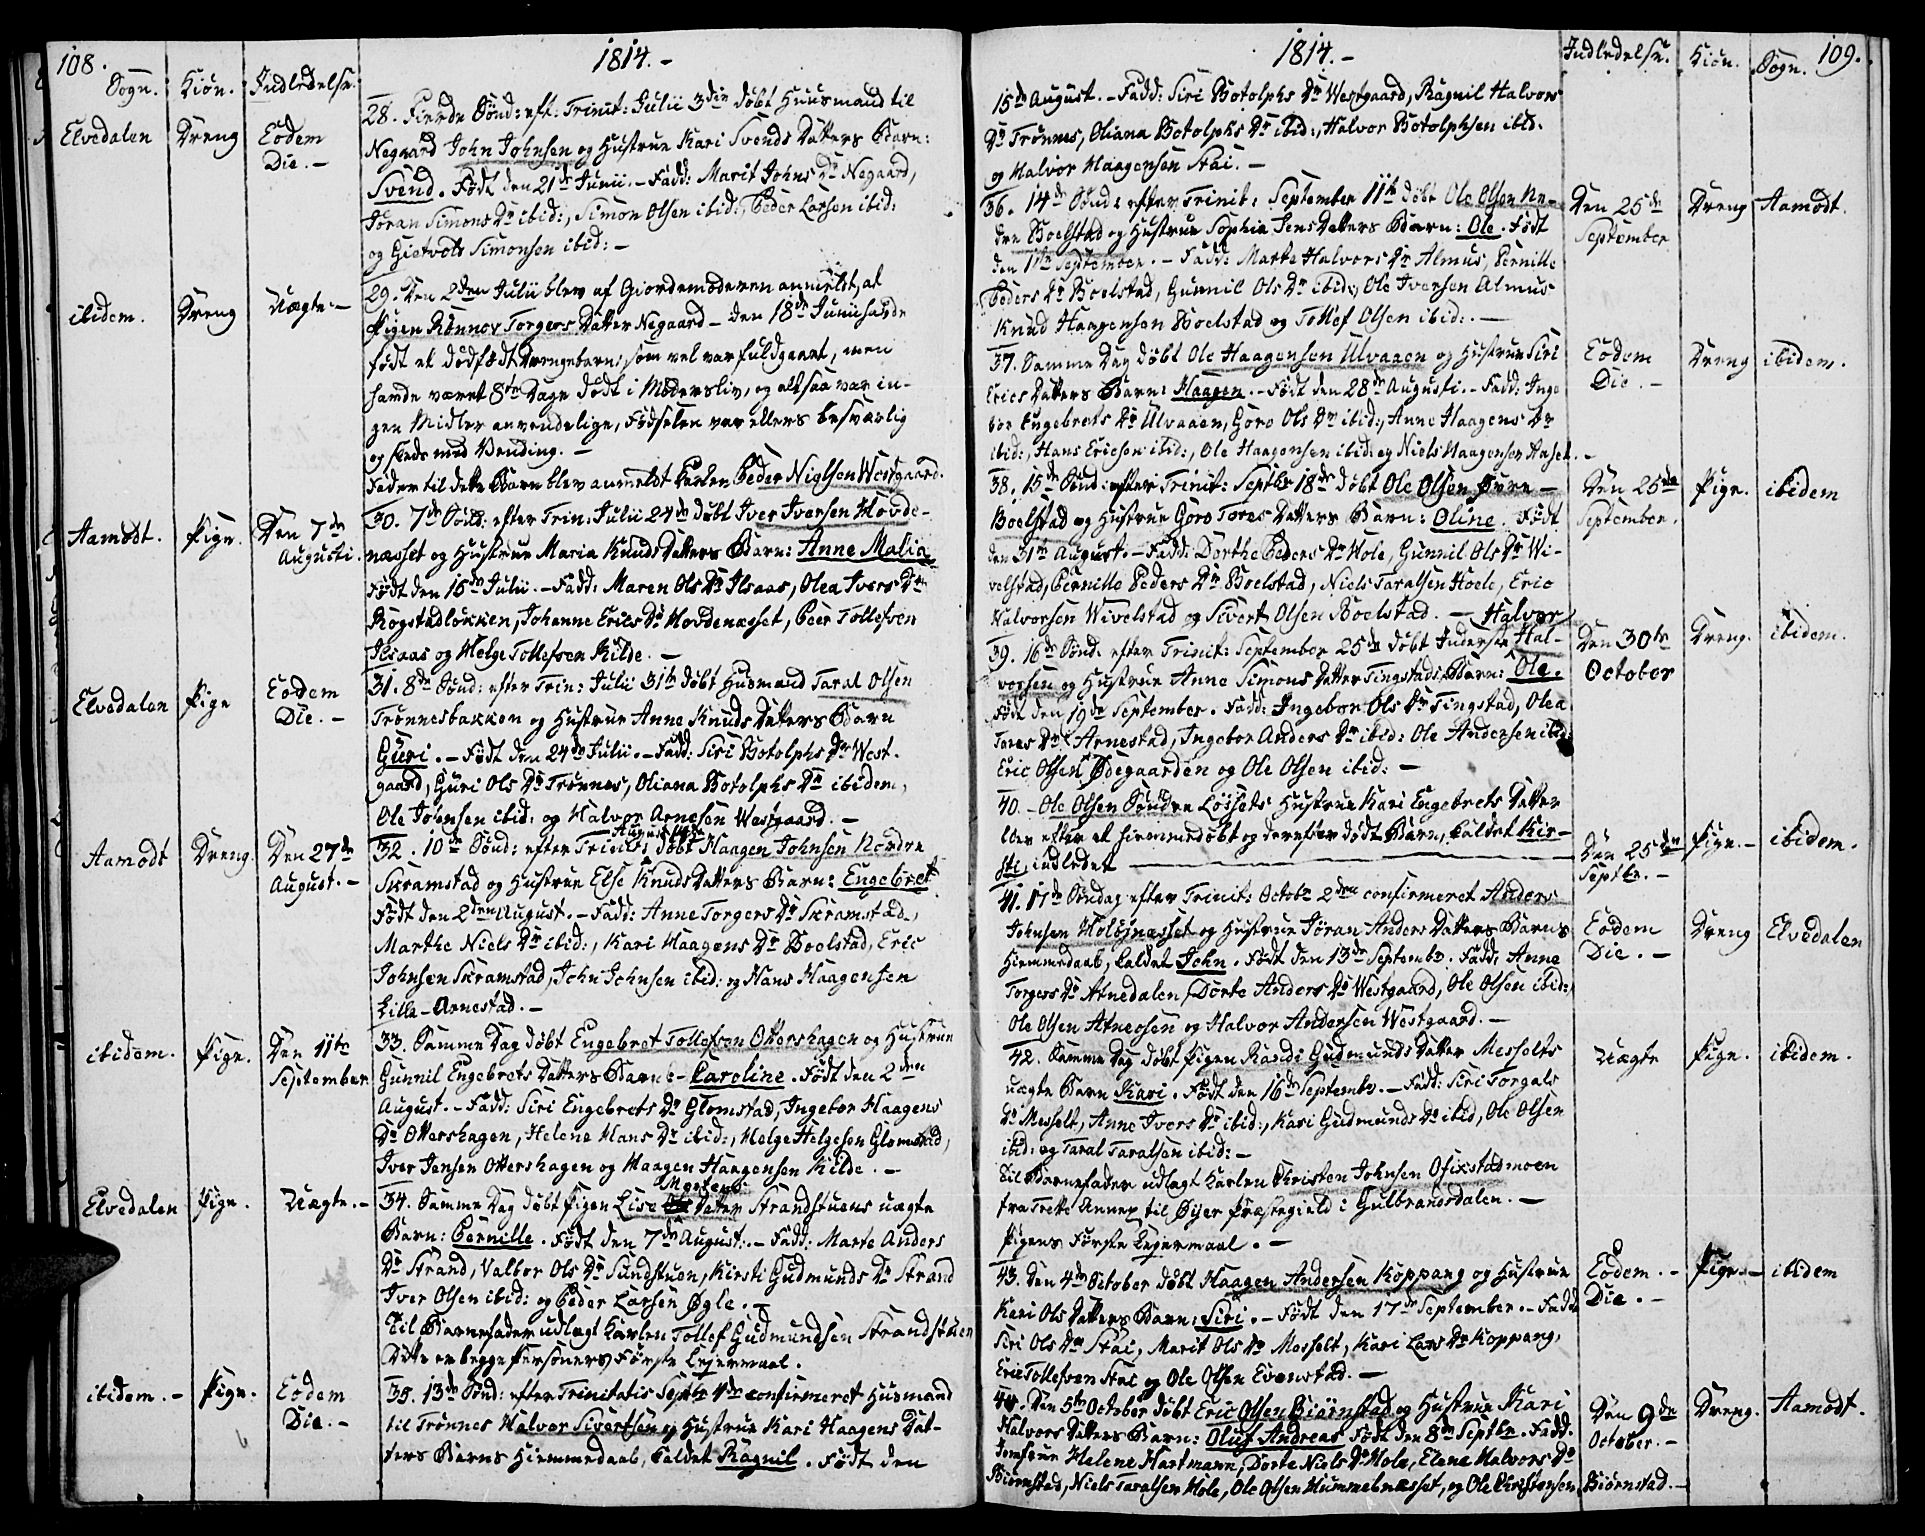 108.
1814.-
Sogn. Kiön. Indledelse.
28. Fierde Sönd: eft: Trinit: Julii 3die döbt Huusmand til
Elvedalen Dreng Eodem Die.-
Negaard John Johnsen og Hustrue Kari Svends Datters Barn:
Svend. Født den 21de Junii.- Fadd: Marit Johns Dr Negaard,
Jöran Simons Dr ibid:, Simon Olsen ibid:, Peder Larsen ibid:
og Giervold Simonsen ibid:-
ibidem. Dreng Uægte.-
29. Den 2den Julii blev af Giordemoderen anmeldt, at
Pigen Rönnov Torgers Datter Negaard - den 18de Junii havde
født et dödfödt Drengebarn; som vel var fuldgaaet, men
havde været 8te Dage dödt i Modersliv, og altsaa var in-
gen Midler anvendelige, Födselen var ellers besværlig
og skede med Vending.-
Fader til dette Barn blev anmeldt Karlen Peder Nielsen Westgaard.
Aamodt. Pige. Den 7de Augusti.
30. 7de Sönd: efter Trin: Julii 24de döbt Iver Iversen Hovde-
næsset og Hustrue Maria Knuds Datters Barn: Anne Malia
Født den 15de Julii.- Fadd: Maren Ols Dr Ilsaas, Olea Ivers Dr
Rogstadløkken, Johanne Erics Dr Hovdenæsset, Peer Tollefsen
Ilsaas og Helge Tollefsen Kilde.-
Elvedalen Pige Eodem Die.-
31. 8de Sönd: efter Trin: Julii 31te döbt Husmand Taral Olsen
Trönnesbakken og Hustrue Anne Knuds Datters Barn
Guri.- Født den 24de Julii.- Fadd: Siri Botolphs Dr West-
gaard, Guri Ols Dr Trönnes, Oliana Botolphs Dr ibidem,
Ole Johnsen ibid: og Halvor Arnesen Westgaard.-
Aamodt Dreng. Den 27de August.-
August 14de
32. 10de Sönd: efter Trinit: döbt Haagen Johnsen Nordre
Skramstad og Hustrue Else Knuds Datters Barn: Engebret
Født den 2den August.- Fadd: Anne Torgers Dr Skramstad,
Marthe Niels Dr ibid:, Kari Haagens Dr Boelstad, Eric
Johnsen Skramstad, John Johnsen ibid: og Hans Haagensen
Lille-Arnestad.-
ibidem. Pige. Den 11te September
33. Samme Dag döbt Engebret Tollefsen Ottershagen og Hustrue
Gunnil Engebrets Datters Barn - Caroline. Født den 2den
August.- Fadd: Siri Engebrets Dr Glomstad, Ingebor Haagens
Dr Ottershagen, Helene Hans Dr ibid:, Helge Helgesen Glomstad,
Iver Jensen Ottershagen og Haagen Haagensen Kilde.-
Elvedalen Pige. Uægte.-
Mortens
34. Samme Dag döbt Pigen Lise Datter Strandstuens uægte
Barn: Pernille. Født den 7de August.- Fadd: Marte Anders
Dr Strand, Valbor Ols Dr Sundstuen, Kirsti Gudmunds Dr Strand
Iver Olsen ibid: og Peder Larsen Øgle.-
Til Barnefader udlagt Karlen Tollef Gudmundsen Strandstuen
Dette er begge Personers Første Lejermaal.
ibidem.- Pige. Eodem Die.-
35. 13de Sönd: efter Trinitatis Septbr 4de confirmeret Husmand
til Trönnes Halvor Sivertsen og Hustrue Kari Haagens Dat-
ters Barns Hiemmedaab, kaldet Ragnil. Født den
1814.-
Indledelse. Kiön. Sogn. 109.
15de August.- Fadd: Siri Botolphs Dr Westgaard, Ragnil Halvors
Dr Trönnes, Oliana Botolphs Dr ibid:, Halvor Botolphsen ibid.
og Halvor Haagensen Stai.-
36. 14de Sönd: efter Trinit: September 11te döbt Ole Olsen Ne-
dre Boelstad og Hustrue Sophie Jens Datters Barn: Ole. Født
den 11te September.- Fadd: Marte Halvors Dr Almus, Pernille
Peders Dr Boelstad, Gunnil Ols Dr ibid:, Ole Iversen Almus
Knud Haagensen Boelstad og Tollef Olsen ibid:.-
Den 25de September Dreng Aamodt.
37. Samme Dag döbt Ole Haagensen Ulvaaen og Hustrue Siri
Erics Datters Barn: Haagen.- Født den 28de Augusti.- Fadd: Inge
bor Engebrets Dr Ulvaaen, Goro Ols Dr ibid:, Anne Haagens Dr
ibid:, Hans Ericsen ibid:, Ole Haagensen ibid: og Niels Haagensen Haset.-
Eodem Die.- Dreng ibidem.
38. 15de Sönd: efter Trinit: Septbr 18de döbt Ole Olsen Øvre-
Boelstad og Hustrue Goro Tores Datters Barn: Oline. Født
den 31te August.- Fadd: Dorthe Peders Dr Hole, Gunnil Ols Dr Wi-
velstad, Pernille Peders Dr Boelstad, Niels Taralsen Hoele, Eric
Halvorsen Wivelstad og Sivert Olsen Boelstad.-
Den 25de September. Pige. ibidem
Halvor
39. 16de Sönd: efter Trinit: September 25de döbt Inderste Hal-
vorsen og Hustrue Anne Simons Datter Tingstads Barn: Ole.
Født den 19de September. Fadd: Ingebor Ols Dr Tingstad, Olea
Tores Dr Arnestad, Ingebor Anders Dr ibid: Ole Andersen ibid:
Eric Olsen Ødegaarden og Ole Olsen ibid:-
Den 30te October Dreng. ibidem.
40.- Ole Olsen Søndre Løssets Hustrue Kari Engebrets Datter
blev efter et hiemmedöbt og derefter dødt Barn, kaldet Kir-
sti, indledet
Den 25de Septbr.- Pige.- ibidem.
41. 17de Söndag efter Trinit: Octobr 2den confirmeret Anders
Johnsen Holöjnæsset og Hustrue Jöran Anders Datters Barns
Hiemmedaab, kaldet John. Født den 13de Septembr. Fadd: Anne
Torgers Dr Atnedalen, Dorte Anders Dr Westgaard, Ole Olsen ibid:,
Ole Olsen Atneosen og Halvor Andersen Westgaard.-
Eodem Die.- Dreng Elvedalen
42. Samme Dag döbt Pigen Randi Gudmunds Datter Messelts
uægte Barn Kari. Født den 16de Septembr.- Fadd: Siri Torgals
Dr Messelt, Anne Ivers Dr ibid:, Kari Gudmunds Dr ibid, Ole Olsen
ibid: og Taral Taralsen ibid:-
Til Barnefader udlagt Karlen Christen Johnsen Ofixstadmoen
fra Trette Annex til Öyer Præstegield i Gulbrandsdalen.-
Pigens Første Lejermaal.-
Uægte Pige. ibidem.
43. Den 4de October döbt Haagen Andersen Koppang og Hustrue
Kari Ols Datters Barn: Siri.- Født den 17de September.- Fadd
Siri Ols Dr Stai, Marit Ols Dr Messelt, Kari Lars Dr Koppang,
Eric Tollefsen Stai og Ole Olsen Evenstad.-
Eodem.- Die.- Pige.- ibidem
44. Den 5te October döbt Eric Olsen Biørnstad og Hustrue Kari
Halvors Datters Barn: Oluf Andreas Født den 8de Septbr. Fadd.
Jomfrue Helene Hartmann, Dorte Niels Dr Hole, Elene Halvors Dr
Biørnstad, Niels Taralsen Hole, Ole Olsen Hummelnæsset, og Ole Christensen Biörnstad.-
Den 9de October.- Dreng. Aamodt.